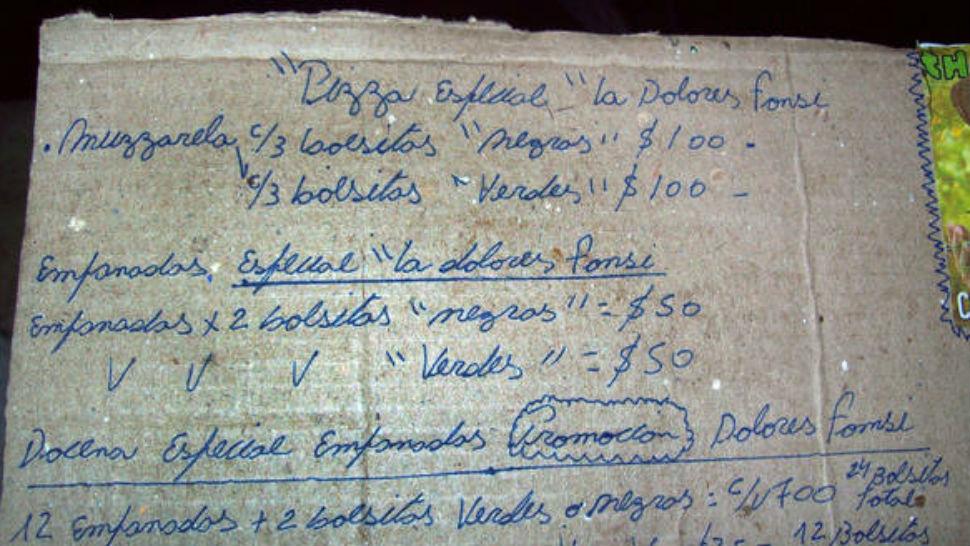 "Pizza Especial "la Dolores fonsi
. Muzzarela c/3 bolsitas "negras" $100 -
c/3 bolsitas "Verdes" $100 -
Empanadas Especial "la dolores fonsi
Empanadas x 2 bolsitas "negras" = $50
V V V "Verdes" = $50
Docena Especial Empanadas Promocion Dolores fonsi
12 Empanadas + 2 bolsitas Verdes o negras = c/u 700 24 Bolsitas Total
12 Bolsitas